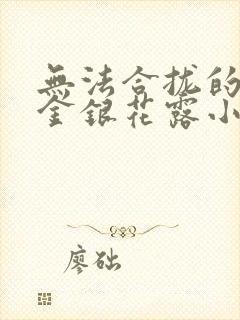 無法合拢的
金銀花露小
廖础